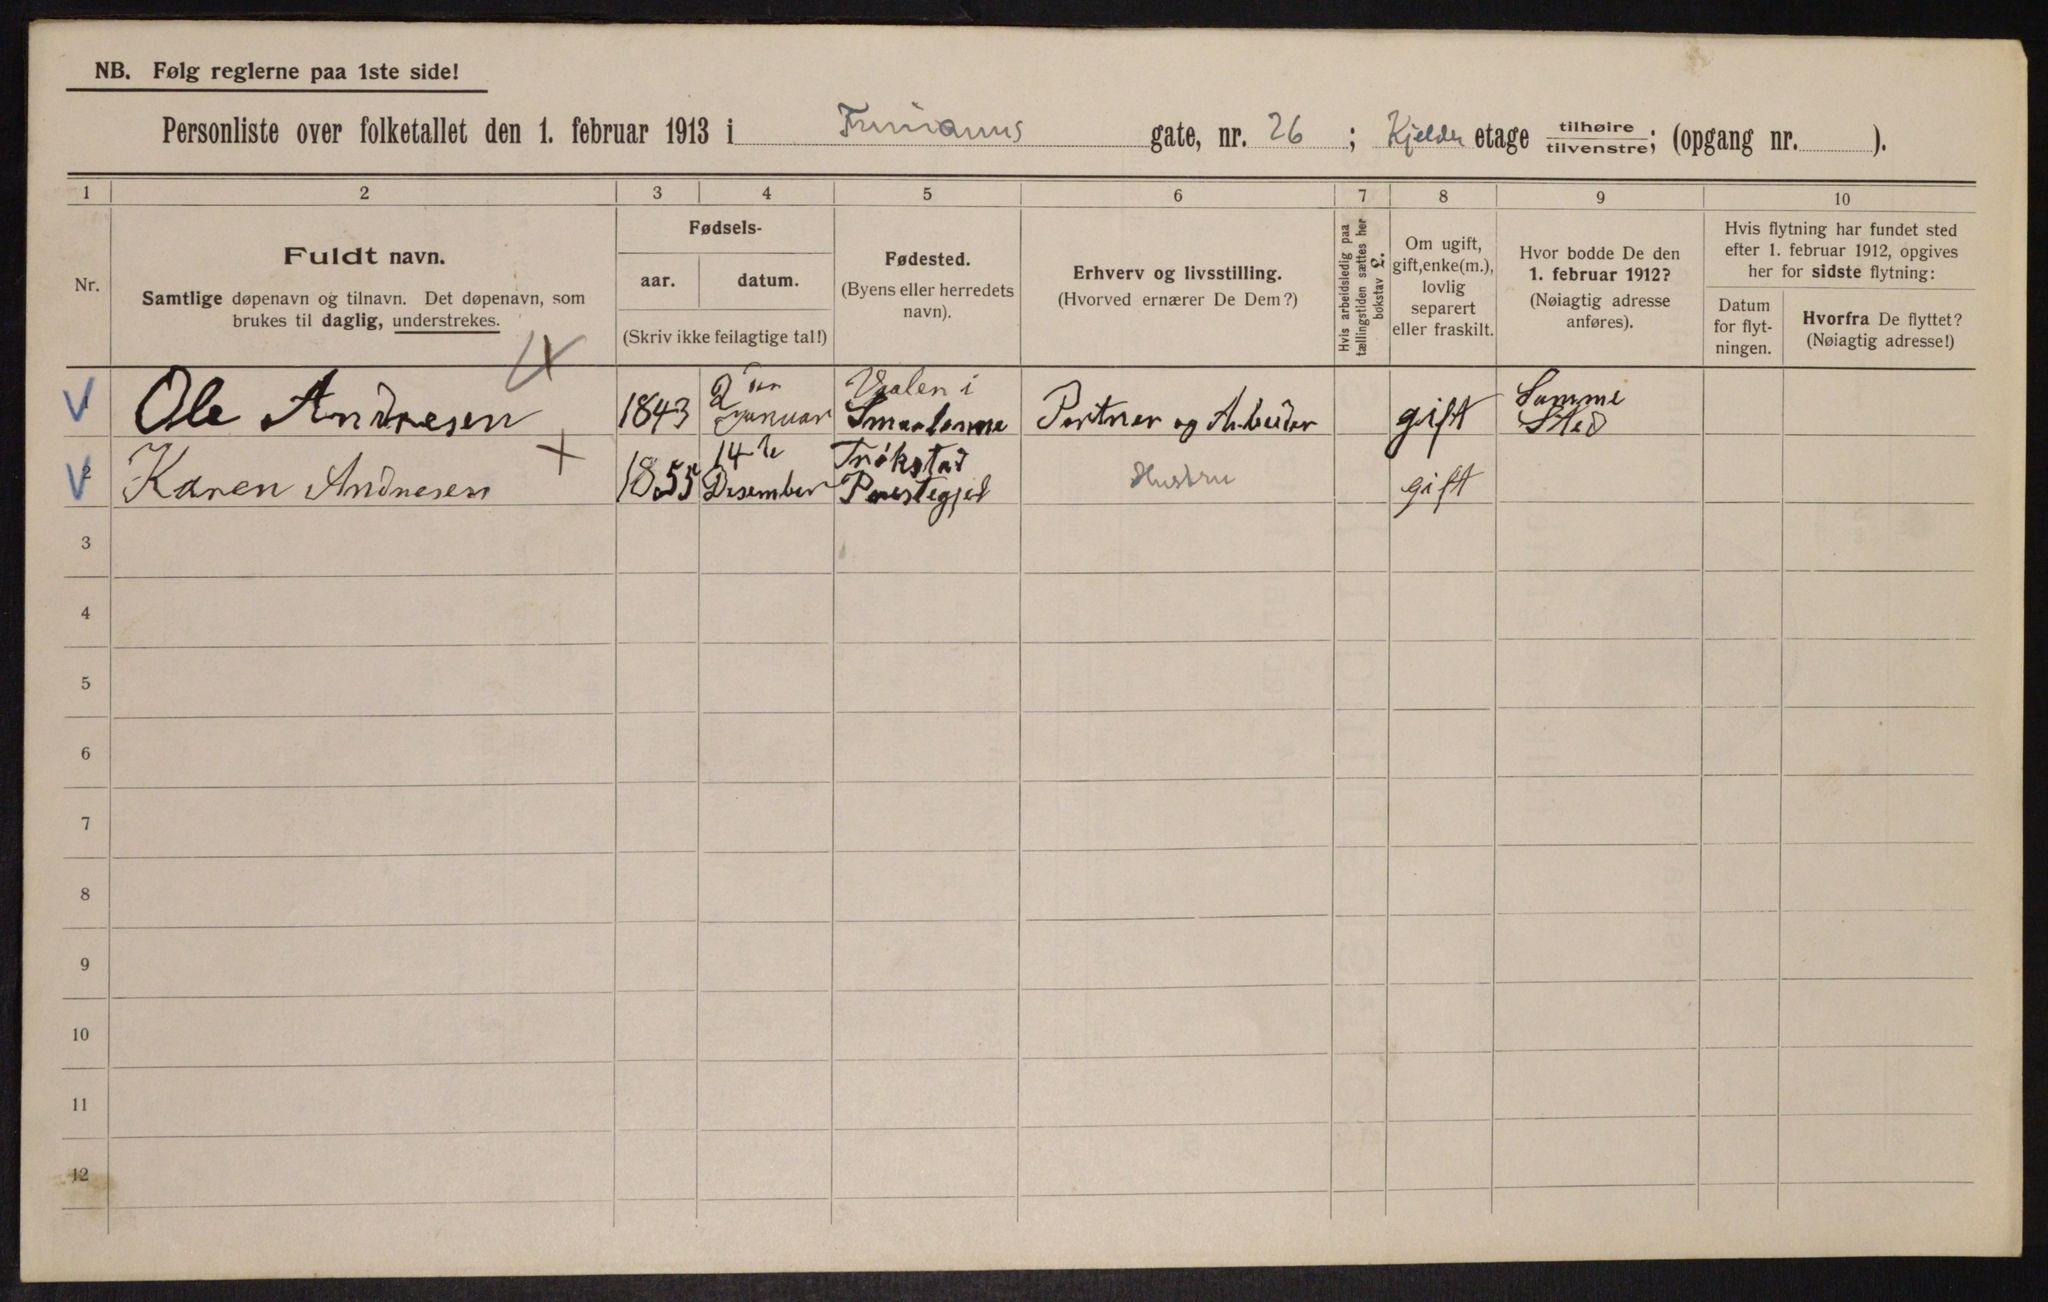 NB. Følg reglerne paa 1ste side!
Personliste over folketallet den 1. februar 1913 i gate, nr. 26; Kjelder etage tilhøire tilvenstre; (opgang nr. ).
1 2 3 4 5 6 7 8 9 10
Nr.
Fuldt navn.
Samtlige døpenavn og tilnavn. Det døpenavn, som
brukes til daglig, understrekes.
Fødsels-
aar. datum.
(Skriv ikke feilagtige tal!)
Fødested.
(Byens eller herredets
navn).
Erhverv og livsstilling.
(Hvorved ernærer De Dem?)
Hvis arbeidsledig paa
tællingstiden sættes her
bokstav L.
Om ugift,
gift, enke(m.),
lovlig
separert
eller fraskilt.
Hvor bodde De den
1. februar 1912?
(Nøiagtig adresse
anføres).
Hvis flytning har fundet sted
efter 1. februar 1912, opgives
her for sidste flytning:
Datum
for flyt-
ningen.
Hvorfra De flyttet?
(Nøiagtig adresse!)
1 Ole Andresen 1843 2den Januar Vaalen i Smaalenene Portner og Arbeider gift Samme Sted
2 Karen Andresen 1855 14de Desember Trøkstad Prestegjel Hustru gift
3
4
5
6
7
8
9
10
11
12